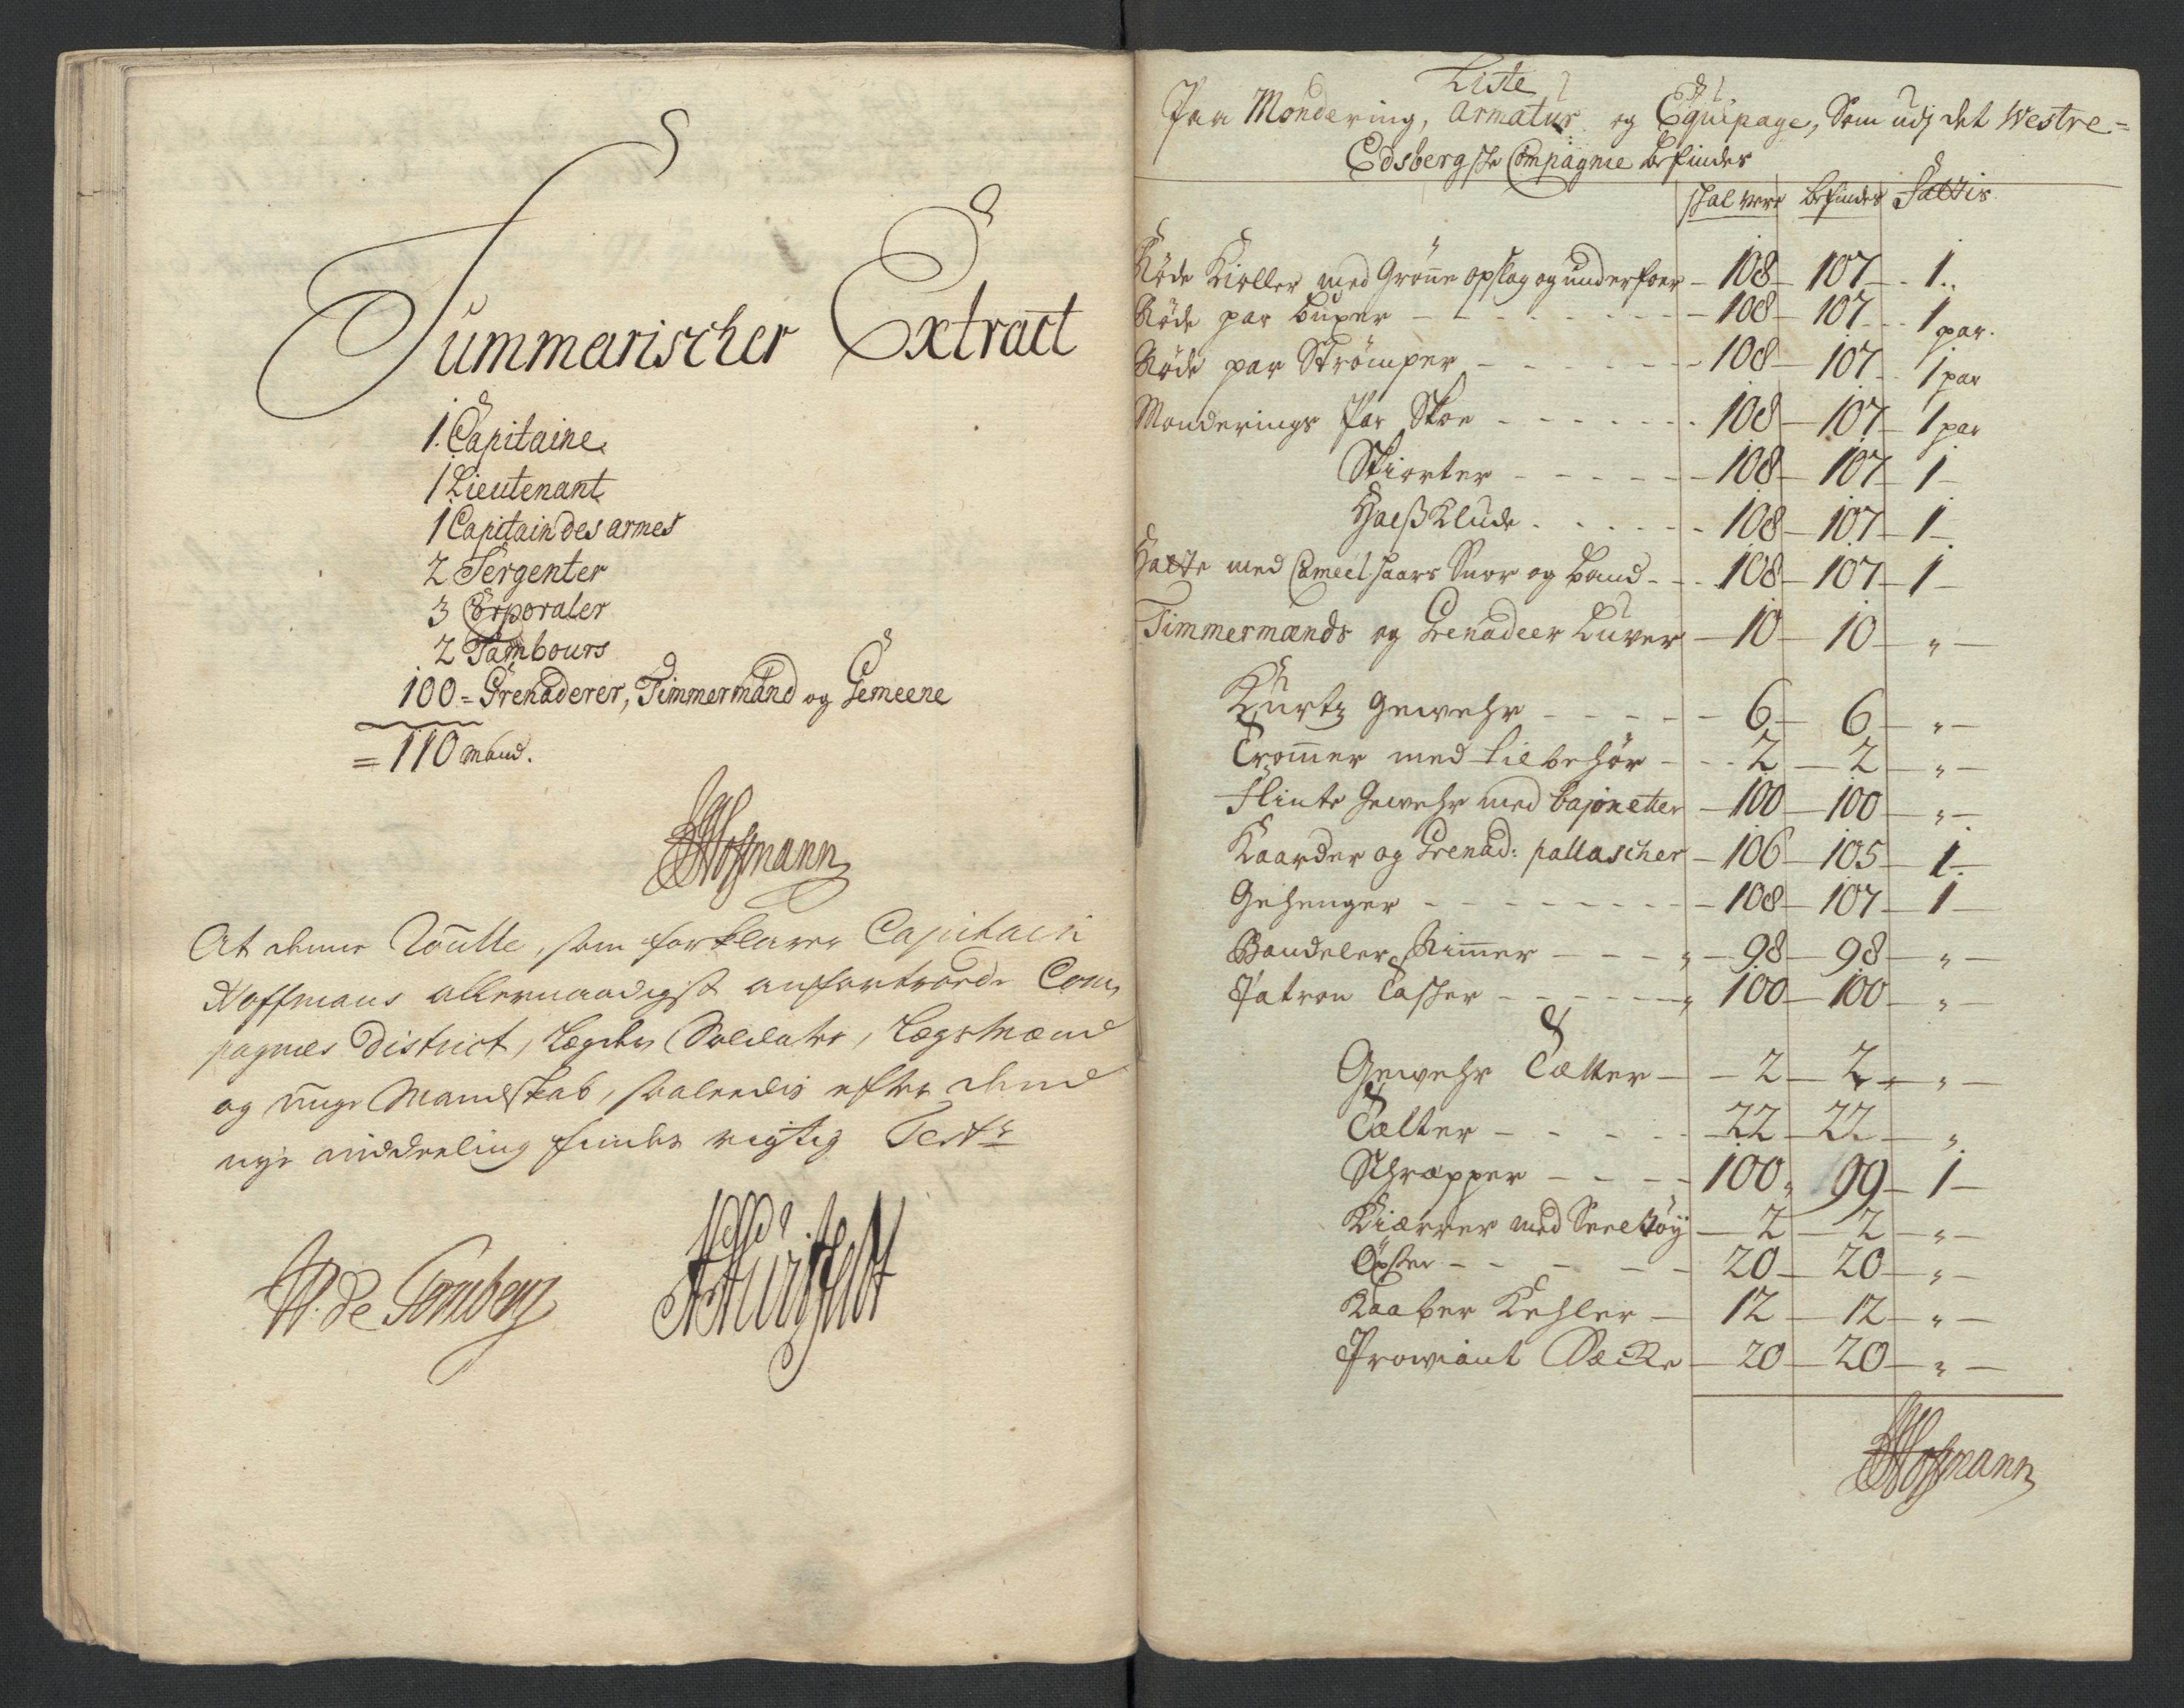 Summarischer Extract
1. Capitaine
1 Lieutenant
1 Capitain des armes
2 Sergenter
3 Corporaler
2 Tambours
100 = Grenaderer, Timmermænd og Gemeene
= 110 Mand.
Hoffmann
At denne Roulle, som forklarer Capitain
Hoffmans allernaadigst anfortroede Com,
pagnies District, Lægder, Soldater, Lægsmænd
og unge Mandskab, saaledis efter dend
nye inddeeling findes rigtig Test:
Liste
Paa Mondering, Armatur og Equipage, Som udj det Westre =
Edsbergske Compagnie befindes
skal være befindes Fattis
Röde Kioller med Grönne opslag og underfoer - 108 - 107 - 1..
Röde par buxer - 108 - 107 - 1 par.
Röde par Strömper - 108 - 107 - 1 par
Monderings Par Skoe - 108 - 107 - 1 par
Skiorter - 108 - 107 - 1
Halsß Klude - 108 - 107 - 1
Hatte med Cameelhaars Snor og baand - 108 - 107 - 1
Timmermænds og Grenadeer Luver - 10 - 10 - "
Kurtz Gewehr - 6 - 6 - "
Trommer med tilbehör - 2 - 2 - "
Flinte Gewehr med bajonetter - 100 - 100 - "
Kaarder og Grenad: pallascher - 106 - 105 - 1
Gehenger - 108 - 107 - 1
Bandeler Rimmer - 98 - 98 - "
Patron Tasker - 100 - 100 - "
Gewehr Tælter - 2 - 2 - "
Tælter - 22 - 22 - "
Schræpper - 100 - 99 - 1
Kiærrer med Seeletöy - 2 - 2 - "
Öxser - 20 - 20 - "
Kaaber Kehler - 12 - 12 - "
Prowiant Sække - 20 - 20 - "
Hoffmann